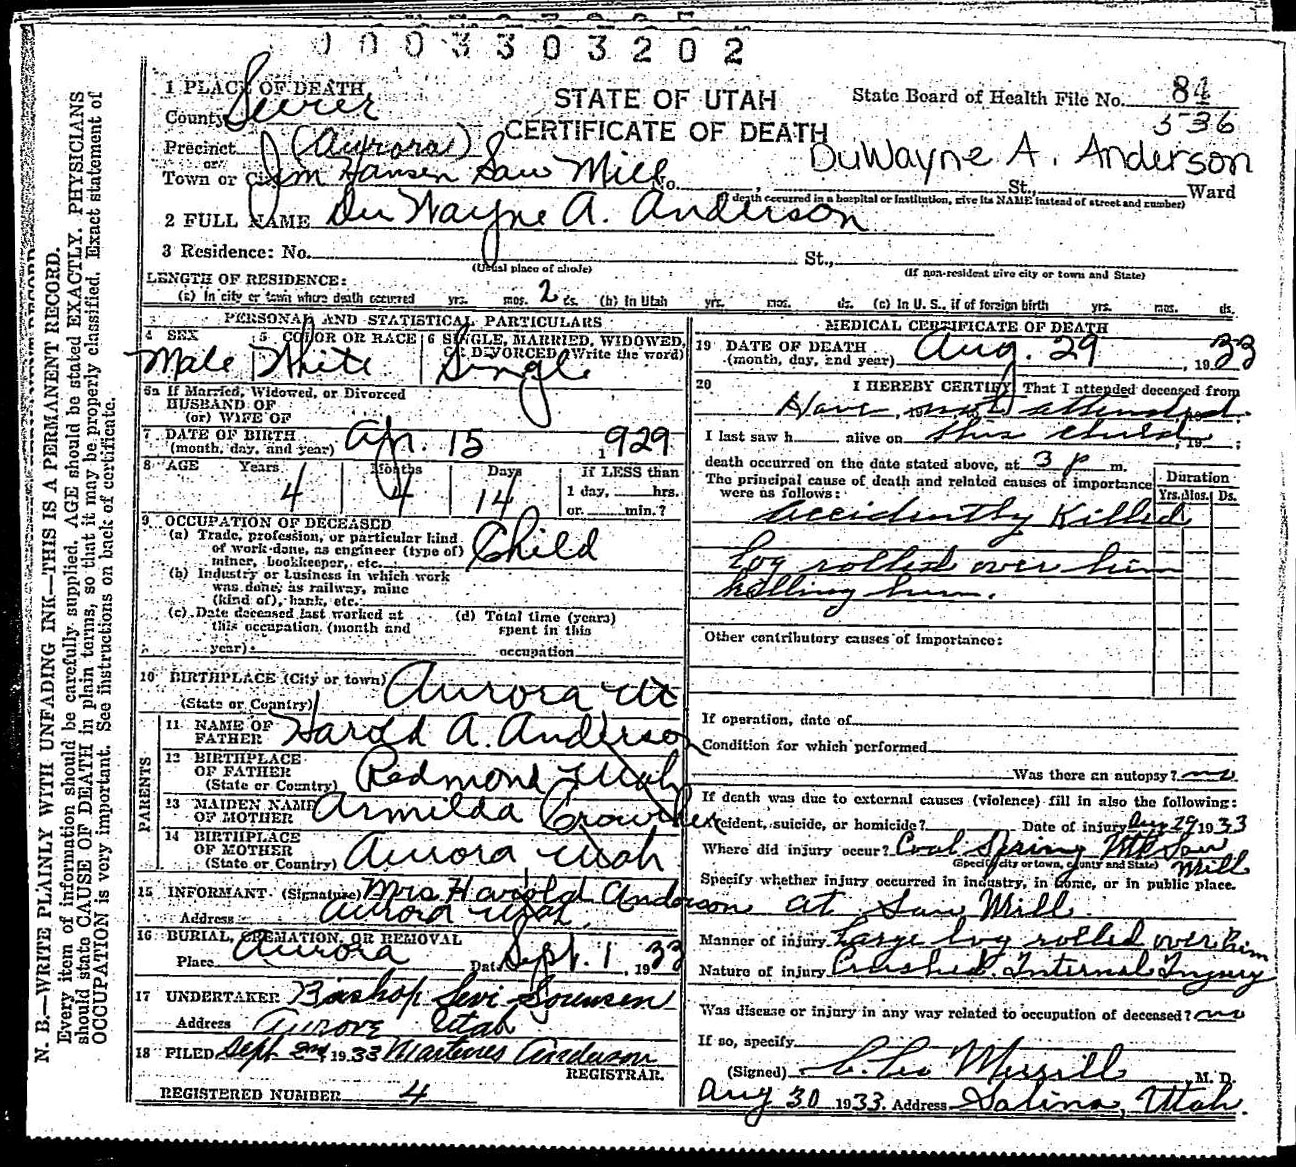 0003303202
1 PLACE OF DEATH
STATE OF UTAH
State Board of Health File No. 84
County Sevier
CERTIFICATE OF DEATH
536
Precinct (Aurora)
DuWayne A. Anderson
or
Town or City Jim Hansen Saw Mill No. , St., Ward
(If death occurred in a hospital or institution, give its NAME instead of street and number)
2 FULL NAME Du Wayne A. Anderson
3 Residence: No. St.,
(Usual place of abode) (If non-resident give city or town and State)
LENGTH OF RESIDENCE:
(a) In city or town where death occurred yrs. mos. 2 ds. (b) In Utah yrs. mos. ds. (c) In U. S., if of foreign birth yrs. mos. ds.
PERSONAL AND STATISTICAL PARTICULARS
4 SEX Male
5 COLOR OR RACE White
6 SINGLE, MARRIED, WIDOWED, OR DIVORCED (Write the word) Single
5a If Married, Widowed, or Divorced
HUSBAND OF
(or) WIFE OF
7 DATE OF BIRTH
(month, day, and year) Apr. 15 1929
8 AGE Years 4 Months 4 Days 14 If LESS than
1 day, hrs.
or min.?
9 OCCUPATION OF DECEASED
(a) Trade, profession, or particular kind
of work done, as engineer (type of)
miner, bookkeeper, etc. Child
(b) Industry or business in which work
was done, as railway, mine
(kind of), bank, etc.
(c) Date deceased last worked at
this occupation (month and
year)
(d) Total time (years)
spent in this
occupation
10 BIRTHPLACE (City or town) Aurora Ut
(State or Country)
PARENTS
11 NAME OF
FATHER Harold A. Anderson
12 BIRTHPLACE
OF FATHER Redmond Utah
(State or Country)
13 MAIDEN NAME
OF MOTHER Armilda Crowther
14 BIRTHPLACE
OF MOTHER Aurora Utah
(State or Country)
15 INFORMANT (Signature) Mrs Harold Anderson
Address Aurora Utah.
16 BURIAL, CREMATION, OR REMOVAL
Place Aurora Date Sept. 1, 1933
17 UNDERTAKER Bishop Levi Sorensen
Address Aurora Utah
18 FILED Sept 2nd 1933 Martenes Anderson
REGISTRAR.
REGISTERED NUMBER 4
MEDICAL CERTIFICATE OF DEATH
19 DATE OF DEATH
(month, day, and year) Aug. 29, 1933
20 I HEREBY CERTIFY, That I attended deceased from
Have not attended
I last saw h alive on this child, 19 ;
death occurred on the date stated above, at 3 p m.
The principal cause of death and related causes of importance
were as follows:
Duration
Yrs. Mos. Ds.
Accidently Killed
Log rolled over him
killing him.
Other contributory causes of importance:
If operation, date of
Condition for which performed
Was there an autopsy? no
If death was due to external causes (violence) fill in also the following:
Accident, suicide, or homicide? Date of injury Aug 29 1933
Where did injury occur? Coal Spring Saw
(Specify city or town, county and State) Mill
Specify whether injury occurred in industry, in home, or in public place.
At Saw Mill.
Manner of injury Large log rolled over him
Nature of injury Crushed. Internal Injury
Was disease or injury in any way related to occupation of deceased? no
If so, specify
(Signed) C. Leo Merrill, M. D.
Aug 30 1933. Address Salina, Utah.
N. B.—WRITE PLAINLY WITH UNFADING INK—THIS IS A PERMANENT RECORD.
Every item of information should be carefully supplied. AGE should be stated EXACTLY. PHYSICIANS
should state CAUSE OF DEATH in plain terms, so that it may be properly classified. Exact statement of
OCCUPATION is very important. See instructions on back of certificate.